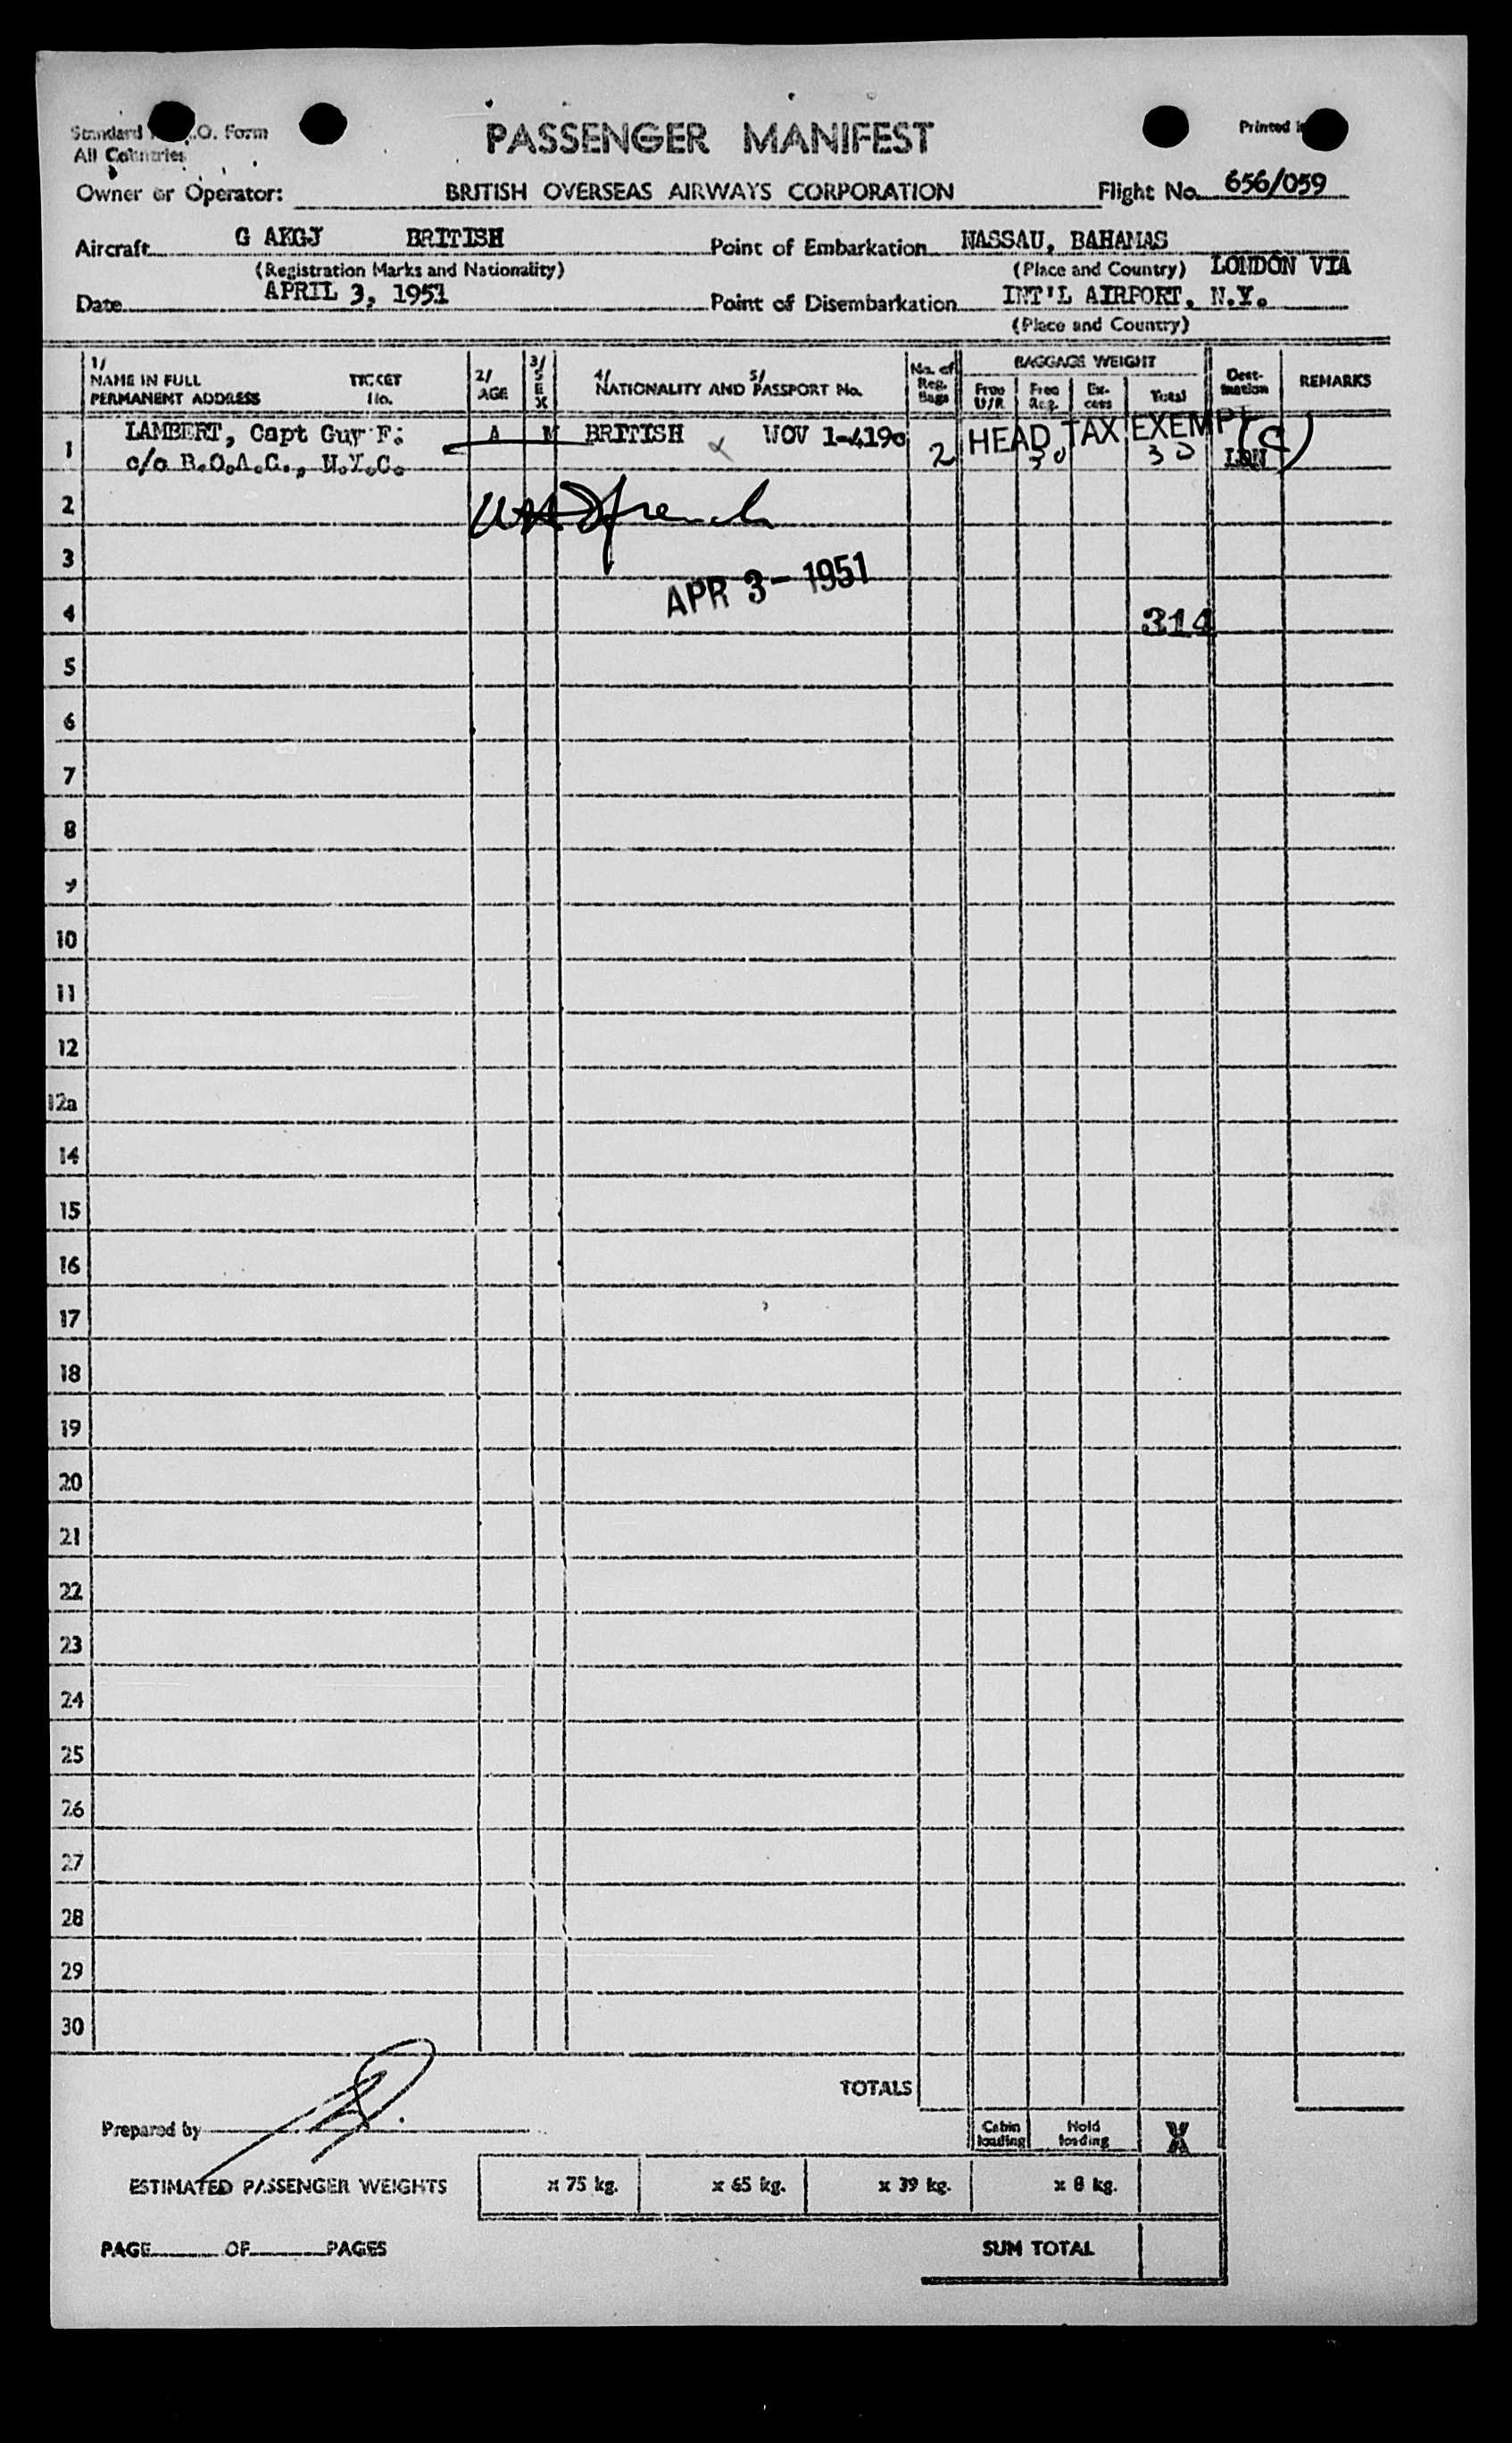 Standard .O. Form
All Countries
PASSENGER MANIFEST
Printed
Owner or Operator: BRITISH OVERSEAS AIRWAYS CORPORATION Flight No. 656/059
Aircraft G AKGJ BRITISH Point of Embarkation NASSAU, BAHAMAS
(Registration Marks and Nationality) (Place and Country) LONDON VIA
Date APRIL 3, 1951 Point of Disembarkation INT'L AIRPORT, N.Y.
(Place and Country)
1/ NAME IN FULL PERMANENT ADDRESS TICKET No. 2/ AGE 3/ SEX 4/ NATIONALITY AND 5/ PASSPORT No. No. of Reg. Bags BAGGAGE WEIGHT Free U/R Free Reg. Ex-cess Total Dest-ination REMARKS
1 LAMBERT, Capt Guy F. A M BRITISH 2 HEAD TAX EXEMPT (C)
c/o B.O.A.C., N.Y.C. 30 30 LON
2
3
APR 3 - 1951
4 314
5
6
7
8
9
10
11
12
12a
14
15
16
17
18
19
20
21
22
23
24
25
26
27
28
29
30
TOTALS
Prepared by Cabin loading Hold loading X
ESTIMATED PASSENGER WEIGHTS x 75 kg. x 65 kg. x 39 kg. x 8 kg.
PAGE OF PAGES SUM TOTAL